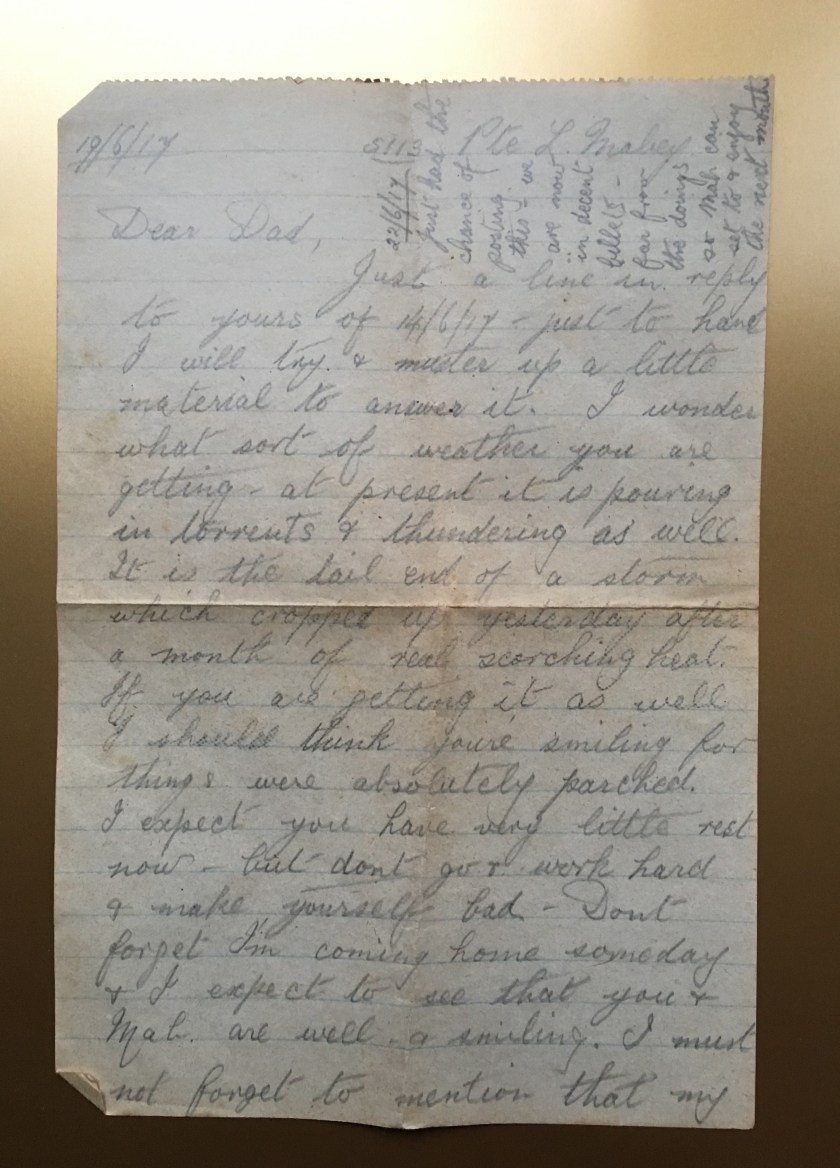 19/6/17
5113 Pte L. Mabey
22/6/17
Just had the
chance of
posting
this - we
are now
in decent
billets -
far from
the doings
so Mah can
set to & enjoy
the next month
Dear Dad,
Just a line in reply
to yours of 14/6/17 - just to hand
I will try & muster up a little
material to answer it. I wonder
what sort of weather you are
getting - at present it is pouring
in torrents & thundering as well.
It is the tail end of a storm
which cropped up yesterday after
a month of real scorching heat.
If you are getting it as well
I should think youre smiling for
things were absolutely parched.
I expect you have very little rest
now - but dont go & work hard
& make yourself bad - Dont
forget I'm coming home someday
& I expect to see that you &
Mah. are well - a smiling. I must
not forget to mention that my